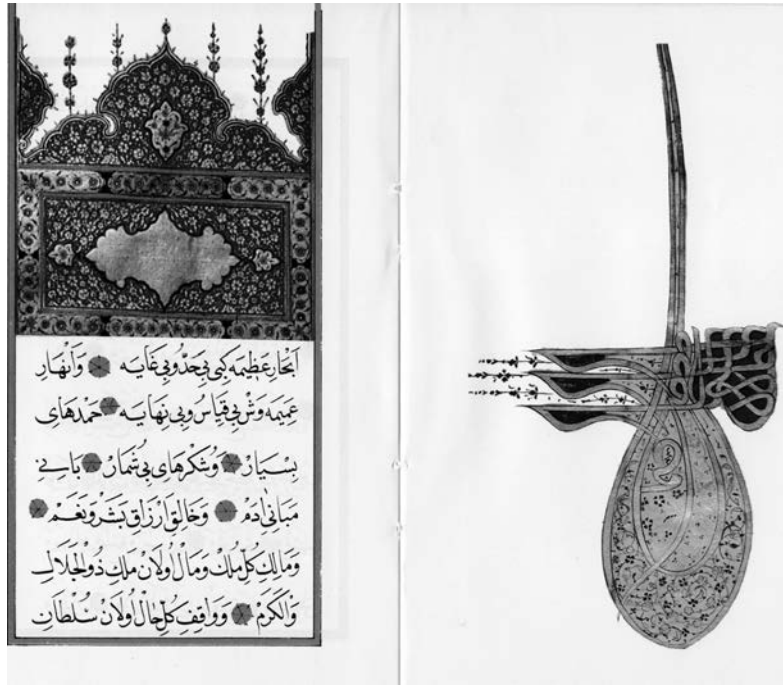 اَبْحَارِ عَظِيمَه كِبِى بِى حَدّ و بِى غَايَه وَاَنْهَارِ
عَمِيمَه وَشْ بِى قِيَاسُ و بِى نِهَايَه حَمْدهَاىِ
بِسْيَارْ وَشُكْرهَاىِ بِى شُمَارْ بَانِئ
مَبَانِئ اٰدَمْ وَخَالِقِ اَرْزَاقِ بَشَرْ وَنَعَمْ
وَمَالِكِ كُلِّ مُلْكْ وَمَالْ اُولَانْ مَلِكِ ذُو الْجَلَالِ
وَالْكَرَمْ وَوَاقِفِ كُلِّ حَالْ اُولَانْ سُلْطَانِ